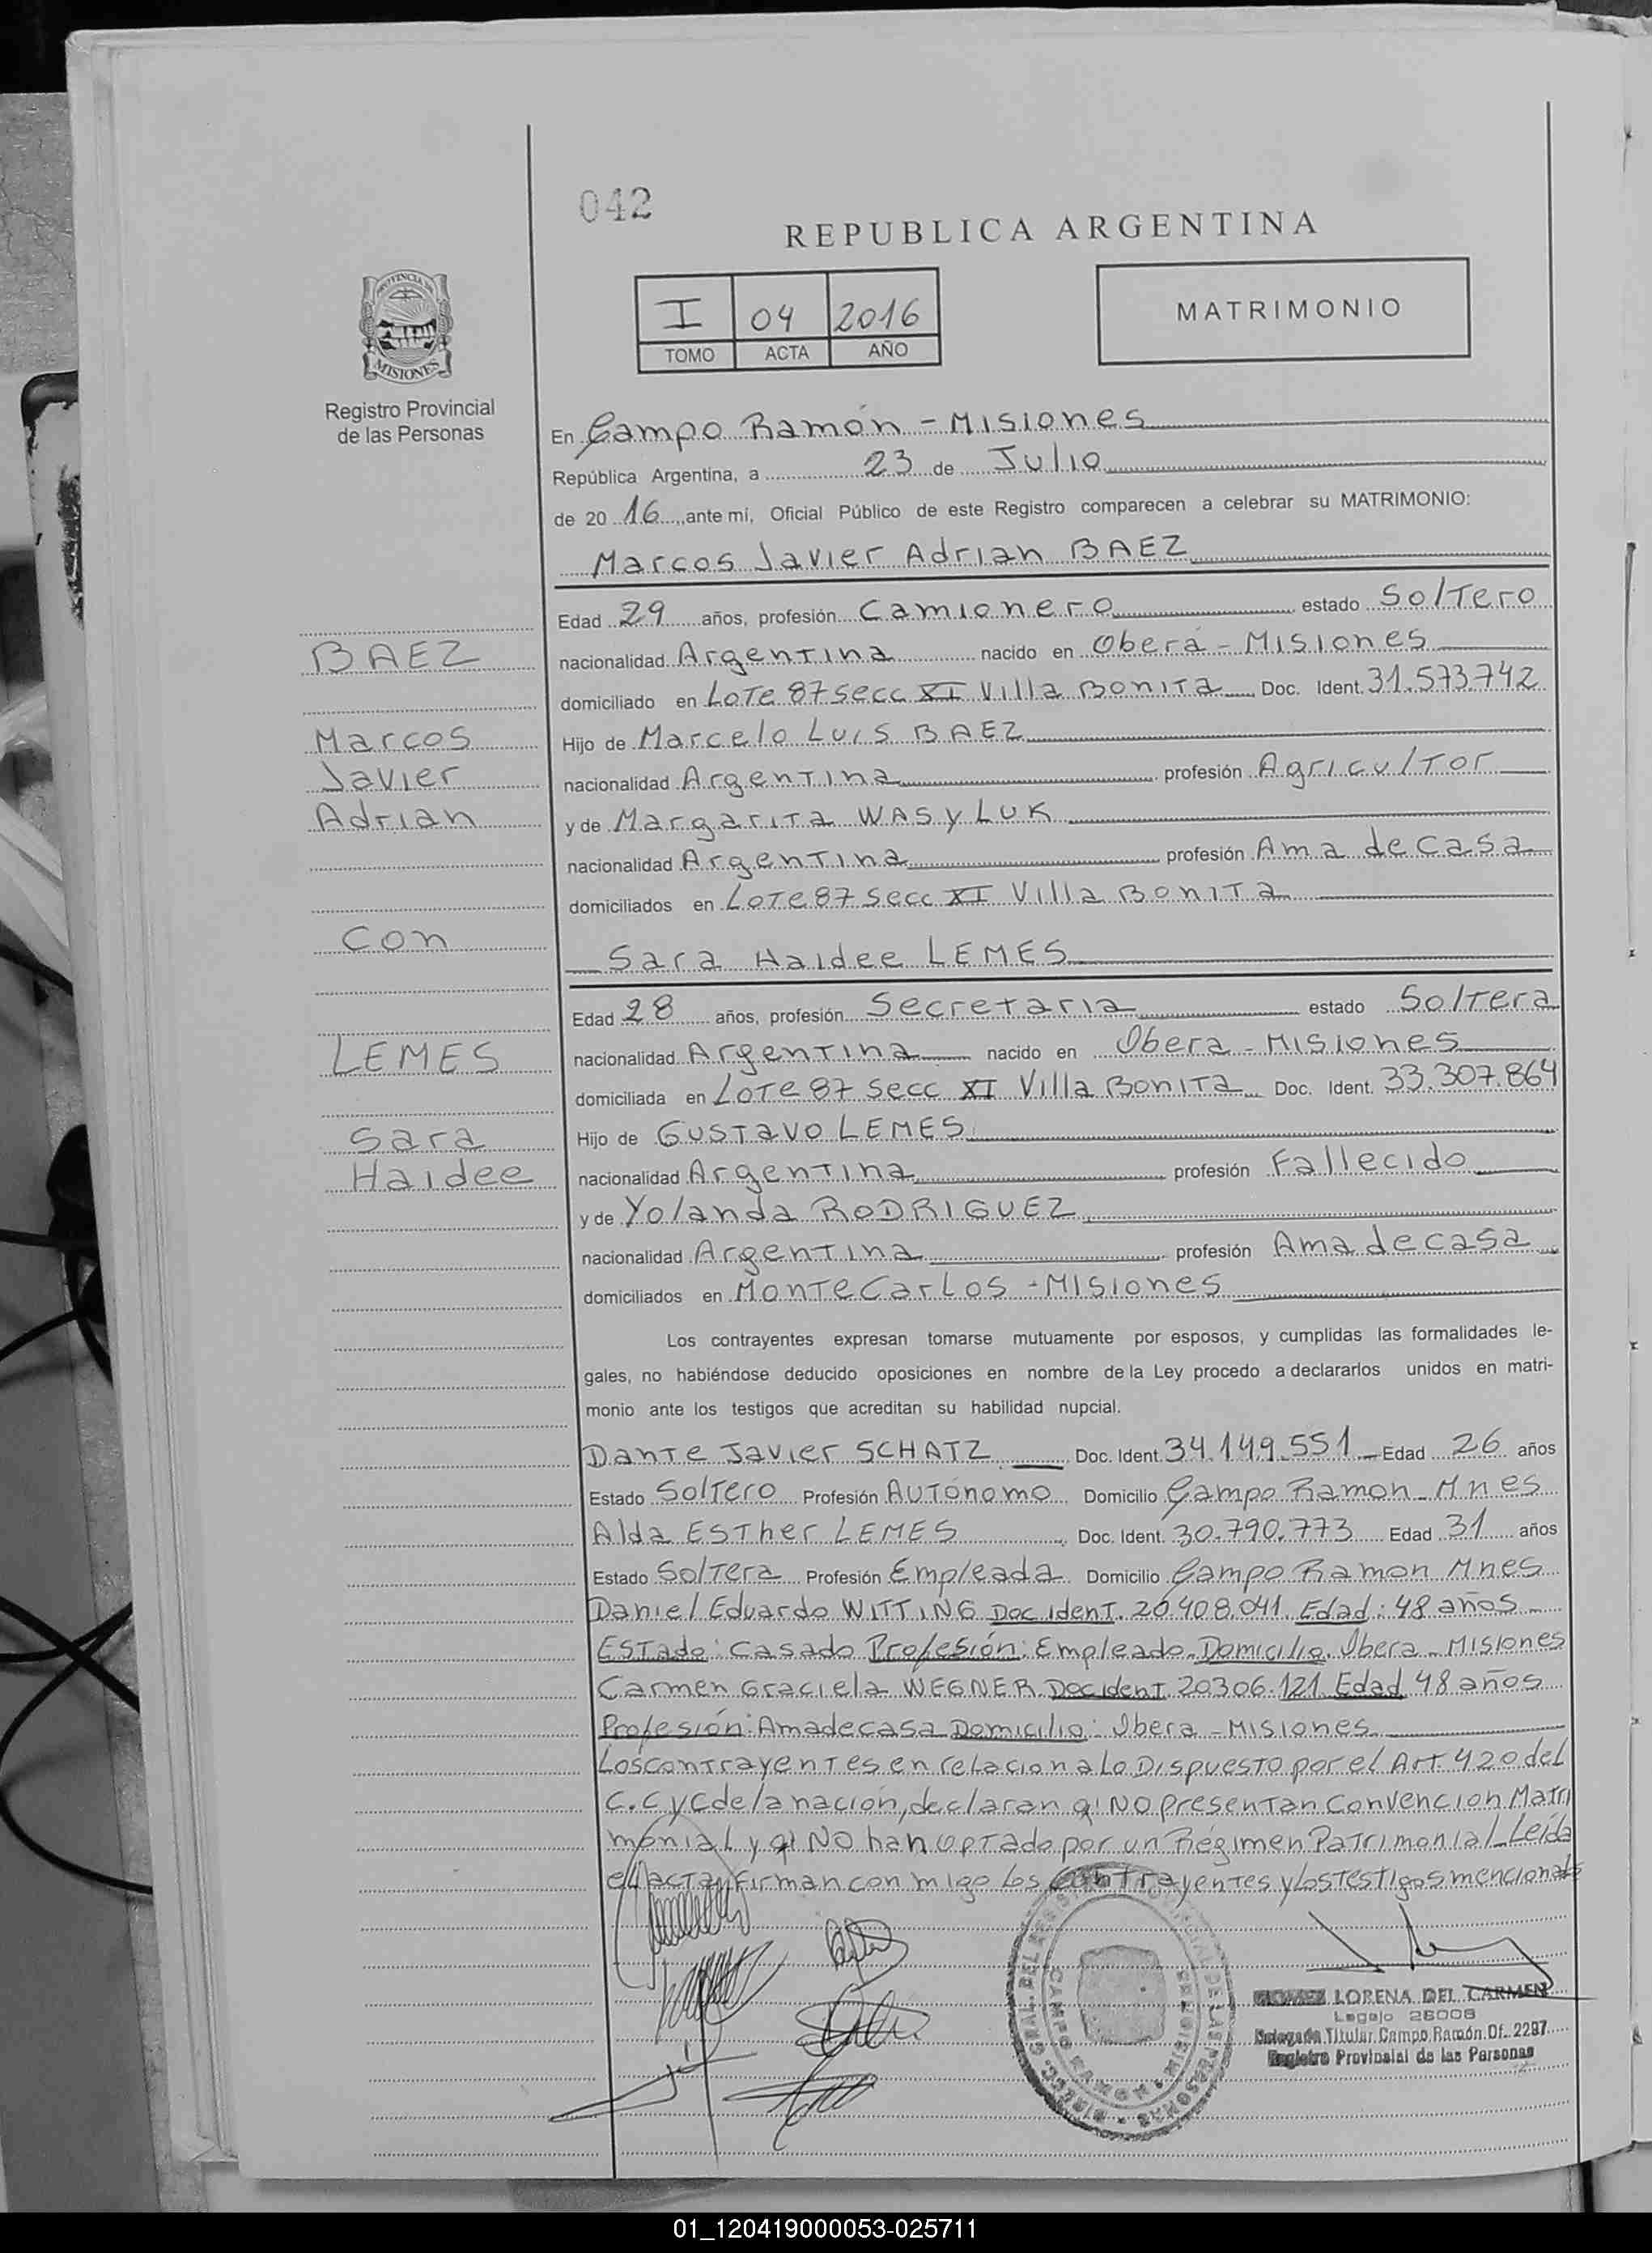 042
REPUBLICA ARGENTINA
PROVINCIA DE
MISIONES
Registro Provincial
de las Personas
I 04 2016
TOMO ACTA AÑO
MATRIMONIO
En Campo Ramón - Misiones
República Argentina, a 23 de Julio
de 20 16, ante mí, Oficial Público de este Registro comparecen a celebrar su MATRIMONIO:
Marcos Javier Adrian BAEZ
Edad 29 años, profesión Camionero estado Soltero
BAEZ
nacionalidad Argentina nacido en Oberá - Misiones
domiciliado en Lote 87 Secc XI Villa Bonita Doc. Ident. 31.573.742
Marcos
Hijo de Marcelo Luis BAEZ
Javier
nacionalidad Argentina profesión Agricultor
Adrian
y de Margarita WASYLUK
nacionalidad Argentina profesión Ama de casa
domiciliados en Lote 87 Secc XI Villa Bonita
Con
Sara Haidee LEMES
Edad 28 años, profesión Secretaria estado Soltera
LEMES
nacionalidad Argentina nacido en Obera - Misiones
domiciliada en Lote 87 Secc XI Villa Bonita Doc. Ident. 33.307.864
Sara
Hijo de Gustavo LEMES
Haidee
nacionalidad Argentina profesión Fallecido
y de Yolanda RODRIGUEZ
nacionalidad Argentina profesión Ama de casa
domiciliados en Monte Carlos - Misiones
Los contrayentes expresan tomarse mutuamente por esposos, y cumplidas las formalidades le-
gales, no habiéndose deducido oposiciones en nombre de la Ley procedo a declararlos unidos en matri-
monio ante los testigos que acreditan su habilidad nupcial.
Dante Javier SCHATZ Doc. Ident. 34.149.551 Edad 26 años
Estado Soltero Profesión Autónomo Domicilio Campo Ramon - Mnes
Alda Esther LEMES Doc. Ident. 30.790.773 Edad 31 años
Estado Soltera Profesión Empleada Domicilio Campo Ramon Mnes
Daniel Eduardo WITTING Doc Ident. 20.408.041 Edad: 48 años
Estado: Casado Profesión: Empleado Domicilio. Obera - Misiones
Carmen Graciela WEGNER Doc ident. 20306.121 Edad 48 años
Profesión: Ama de casa Domicilio: Obera - Misiones
Los contrayentes en relacion a Lo Dispuesto por el Art. 420 del
C.C y C de la nación, declaran q' NO presentan Convención Matri
monial y q' NO han optado por un Régimen Patrimonial Leída
el Acta, firman conmigo los contrayentes y los testigos mencionados
GOMEZ LORENA DEL CARMEN
Legajo 26008
Delegada Titular Campo Ramón Of. 2297
Registro Provincial de las Personas
01_120419000053-025711